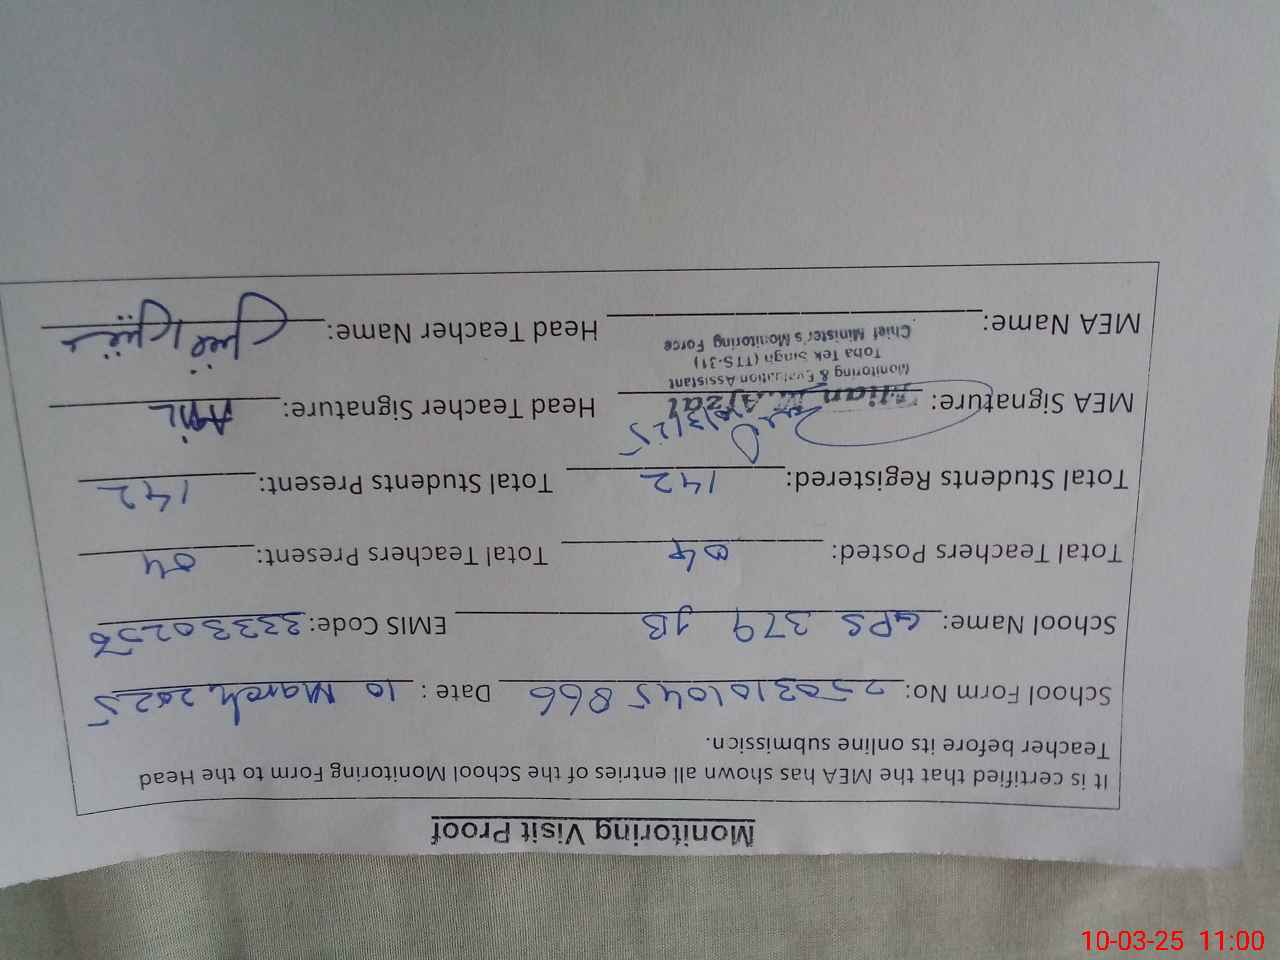 Monitoring Visit Proof
It is certified that the MEA has shown all entries of the School Monitoring Form to the Head
Teacher before its online submission.
School Form No: 250310104 5 866 Date : 10 March, 2025
School Name: GPS 379 JB EMIS Code: 33330256
Total Teachers Posted: 04 Total Teachers Present: 04
Total Students Registered: 142 Total Students Present: 142
10/3/25
MEA Signature: Mian M. Afzal Head Teacher Signature:
Monitoring & Evaluation Assistant
Toba Tek Singh (TTS-31)
Chief Minister's Monitoring Force
MEA Name: Head Teacher Name:
10-03-25 11:00